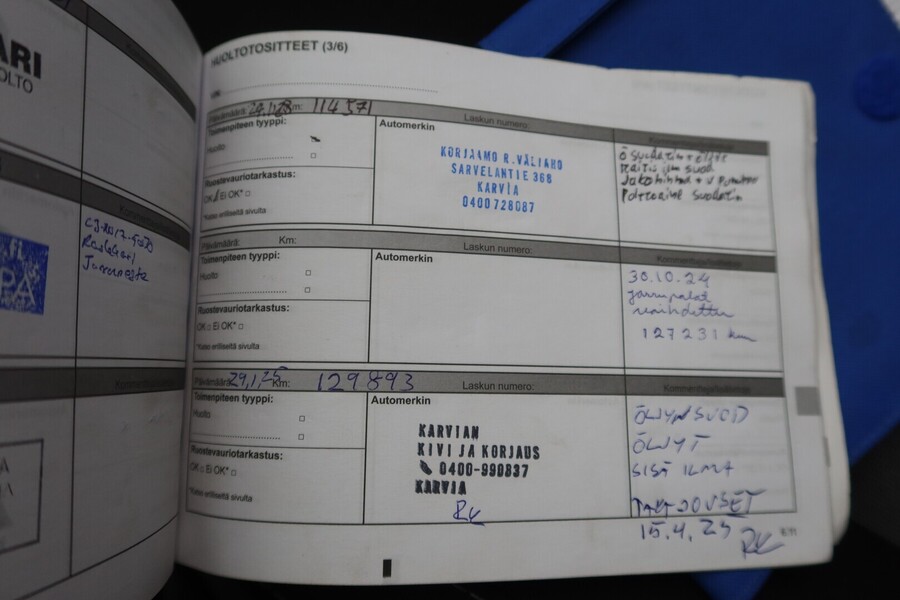 ARI
OLTO
PA
HUOLTOTOSITTEET (3/6)
VIN:
Km: 114571
Laskun numero:
Toimenpiteen tyyppi:
Huolto
Ruostevauriotarkastus:
OK Ei OK*
*Katso erilliseltä sivulta
Automerkin
KORJAAMO R.VÄLIAHO
SARVELANTIE 368
KARVIA
0400728087
Ö suodatin + öljyt
Raitis ilm suod
Jakohihna + v pumppu
Polttoaine suodatin
Päivämäärä: Km:
Laskun numero:
Toimenpiteen tyyppi:
Huolto
Ruostevauriotarkastus:
OK Ei OK*
*Katso erilliseltä sivulta
Automerkin
30.10.24
jarrupalat
vaihdettu
127231 km
Päivämäärä: 29.1.25 Km: 129893
Laskun numero:
Toimenpiteen tyyppi:
Huolto
Ruostevauriotarkastus:
OK Ei OK*
*Katso erilliseltä sivulta
Automerkin
KARVIAN
KIVI JA KORJAUS
0400-990837
KARVIA
RK
ÖLJYNSUOD
ÖLJYT
SISÄ ILMA
TAKAJOUSET
15.4.25
RK